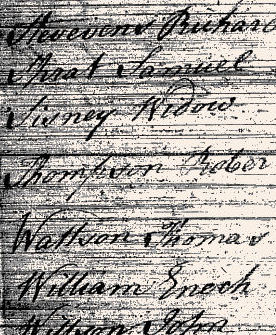 Stevevens Richard
Sroat Samuel
Sisney Widow
Thompson Rober
Wattson Thomas
William Enoch
Willson John